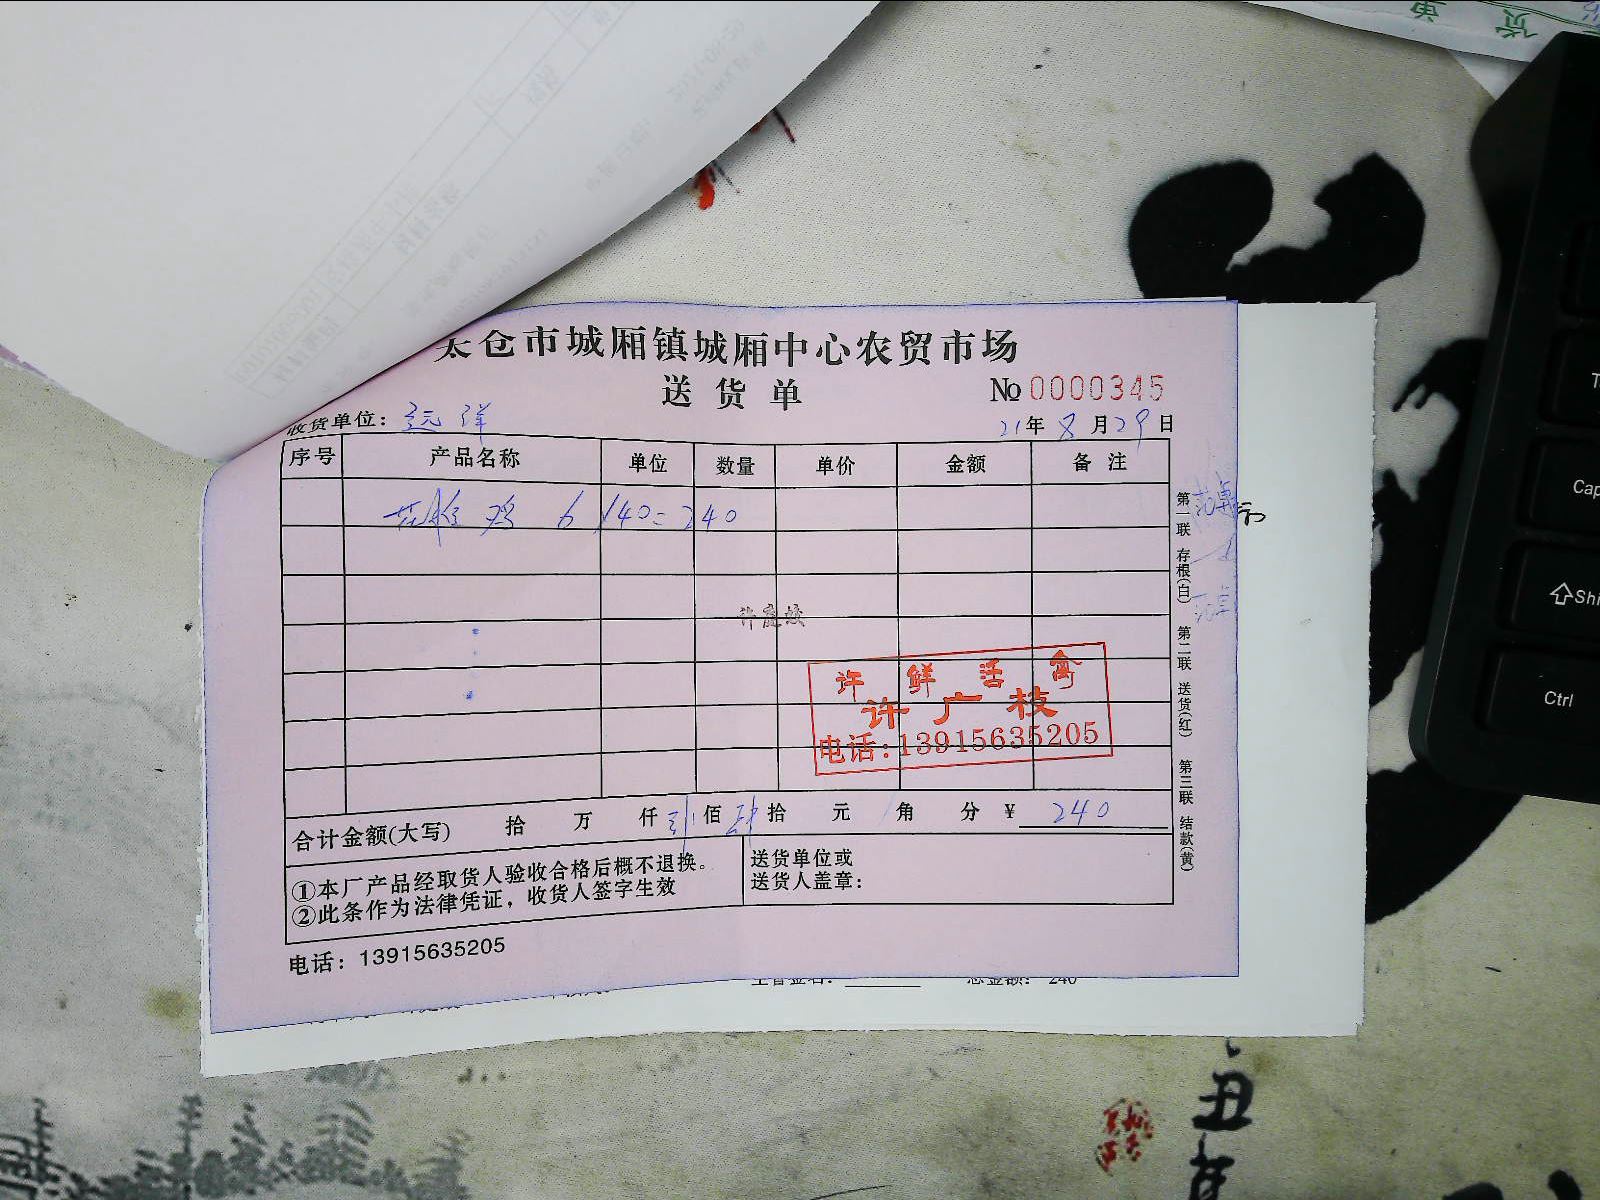 太仓市城厢镇城厢中心农贸市场
送货单
No 0000345
收货单位：远洋
21年8月29日
序号 产品名称 单位 数量 单价 金额 备注
鸡 6 140=240
第一联 存根(白) 第二联 送货(红) 第三联 结款(黄)
许鲜活禽
许广枝
电话:13915635205
合计金额(大写) 拾 万 仟 佰 肆 拾 元 角 分 ¥ 240
①本厂产品经取货人验收合格后概不退换。
②此条作为法律凭证，收货人签字生效
送货单位或
送货人盖章：
电话：13915635205
总金额： 240
Cap
Shi
Ctrl
丑